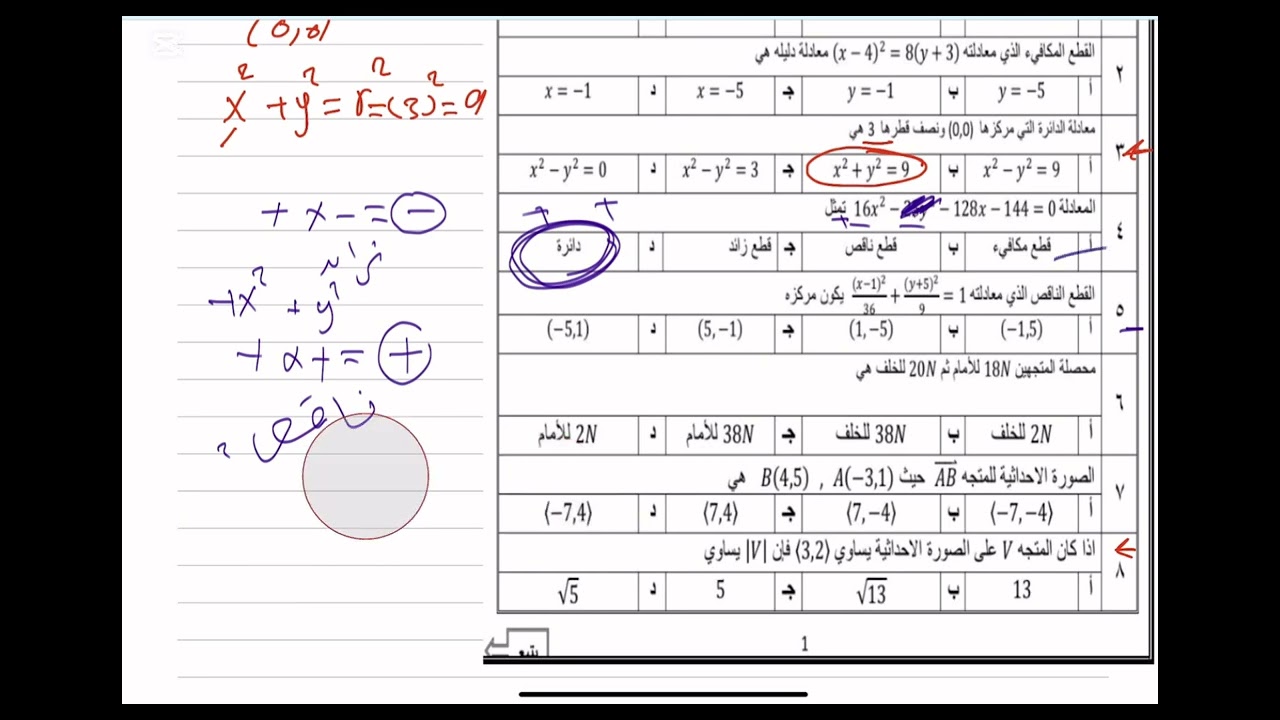 (0,0)
x² + y² = r² = (3)² = 9
+ x - = -
زائد
+x² + y²
+ x + = +
ناقص
٢
القطع المكافيء الذي معادلته (x − 4)² = 8(y + 3) معادلة دليله هي
أ y = −5 ب y = −1 جـ x = −5 د x = −1
٣
معادلة الدائرة التي مركزها (0,0) ونصف قطرها 3 هي
أ x² − y² = 9 ب x² + y² = 9 جـ x² − y² = 3 د x² − y² = 0
٤
المعادلة 16x² − − 128x − 144 = 0 تمثل
+ +
+ −
أ قطع مكافيء ب قطع ناقص جـ قطع زائد د دائرة
٥
القطع الناقص الذي معادلته (x−1)²/36 + (y+5)²/9 = 1 يكون مركزه
أ (−1,5) ب (1,−5) جـ (5,−1) د (−5,1)
٦
محصلة المتجهين 18N للأمام ثم 20N للخلف هي
أ 2N للخلف ب 38N للخلف جـ 38N للأمام د 2N للأمام
٧
الصورة الاحداثية للمتجه AB حيث A(−3,1) , B(4,5) هي
أ ⟨−7,−4⟩ ب ⟨7,−4⟩ جـ ⟨7,4⟩ د ⟨−7,4⟩
٨
اذا كان المتجه V على الصورة الاحداثية يساوي ⟨3,2⟩ فإن |V| يساوي
أ 13 ب √13 جـ 5 د √5
1
يتبع